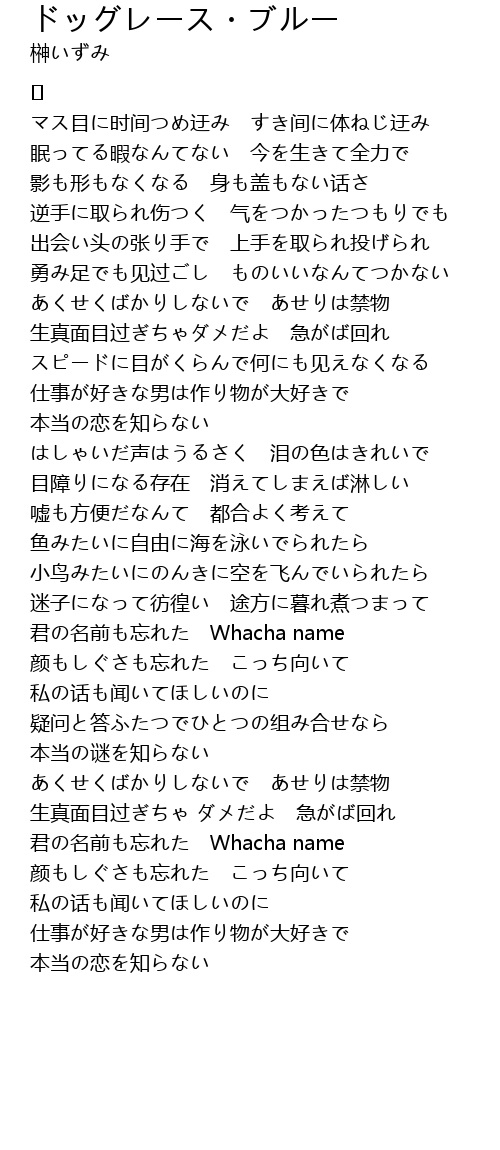 ドッグレース・ブルー
榊いずみ
マス目に时间つめ迂み　すき间に体ねじ迂み
眠ってる暇なんてない　今を生きて全力で
影も形もなくなる　身も盖もない话さ
逆手に取られ伤つく　気をつかったつもりでも
出会い头の张り手で　上手を取られ投げられ
勇み足でも见过ごし　ものいいなんてつかない
あくせくばかりしないで　あせりは禁物
生真面目过ぎちゃダメだよ　急がば回れ
スピードに目がくらんで何にも见えなくなる
仕事が好きな男は作り物が大好きで
本当の恋を知らない
はしゃいだ声はうるさく　泪の色はきれいで
目障りになる存在　消えてしまえば淋しい
嘘も方便だなんて　都合よく考えて
鱼みたいに自由に海を泳いでられたら
小鸟みたいにのんきに空を飞んでいられたら
迷子になって彷徨い　途方に暮れ煮つまって
君の名前も忘れた　Whacha name
颜もしぐさも忘れた　こっち向いて
私の话も闻いてほしいのに
疑问と答ふたつでひとつの组み合せなら
本当の谜を知らない
あくせくばかりしないで　あせりは禁物
生真面目过ぎちゃ ダメだよ　急がば回れ
君の名前も忘れた　Whacha name
颜もしぐさも忘れた　こっち向いて
私の话も闻いてほしいのに
仕事が好きな男は作り物が大好きで
本当の恋を知らない